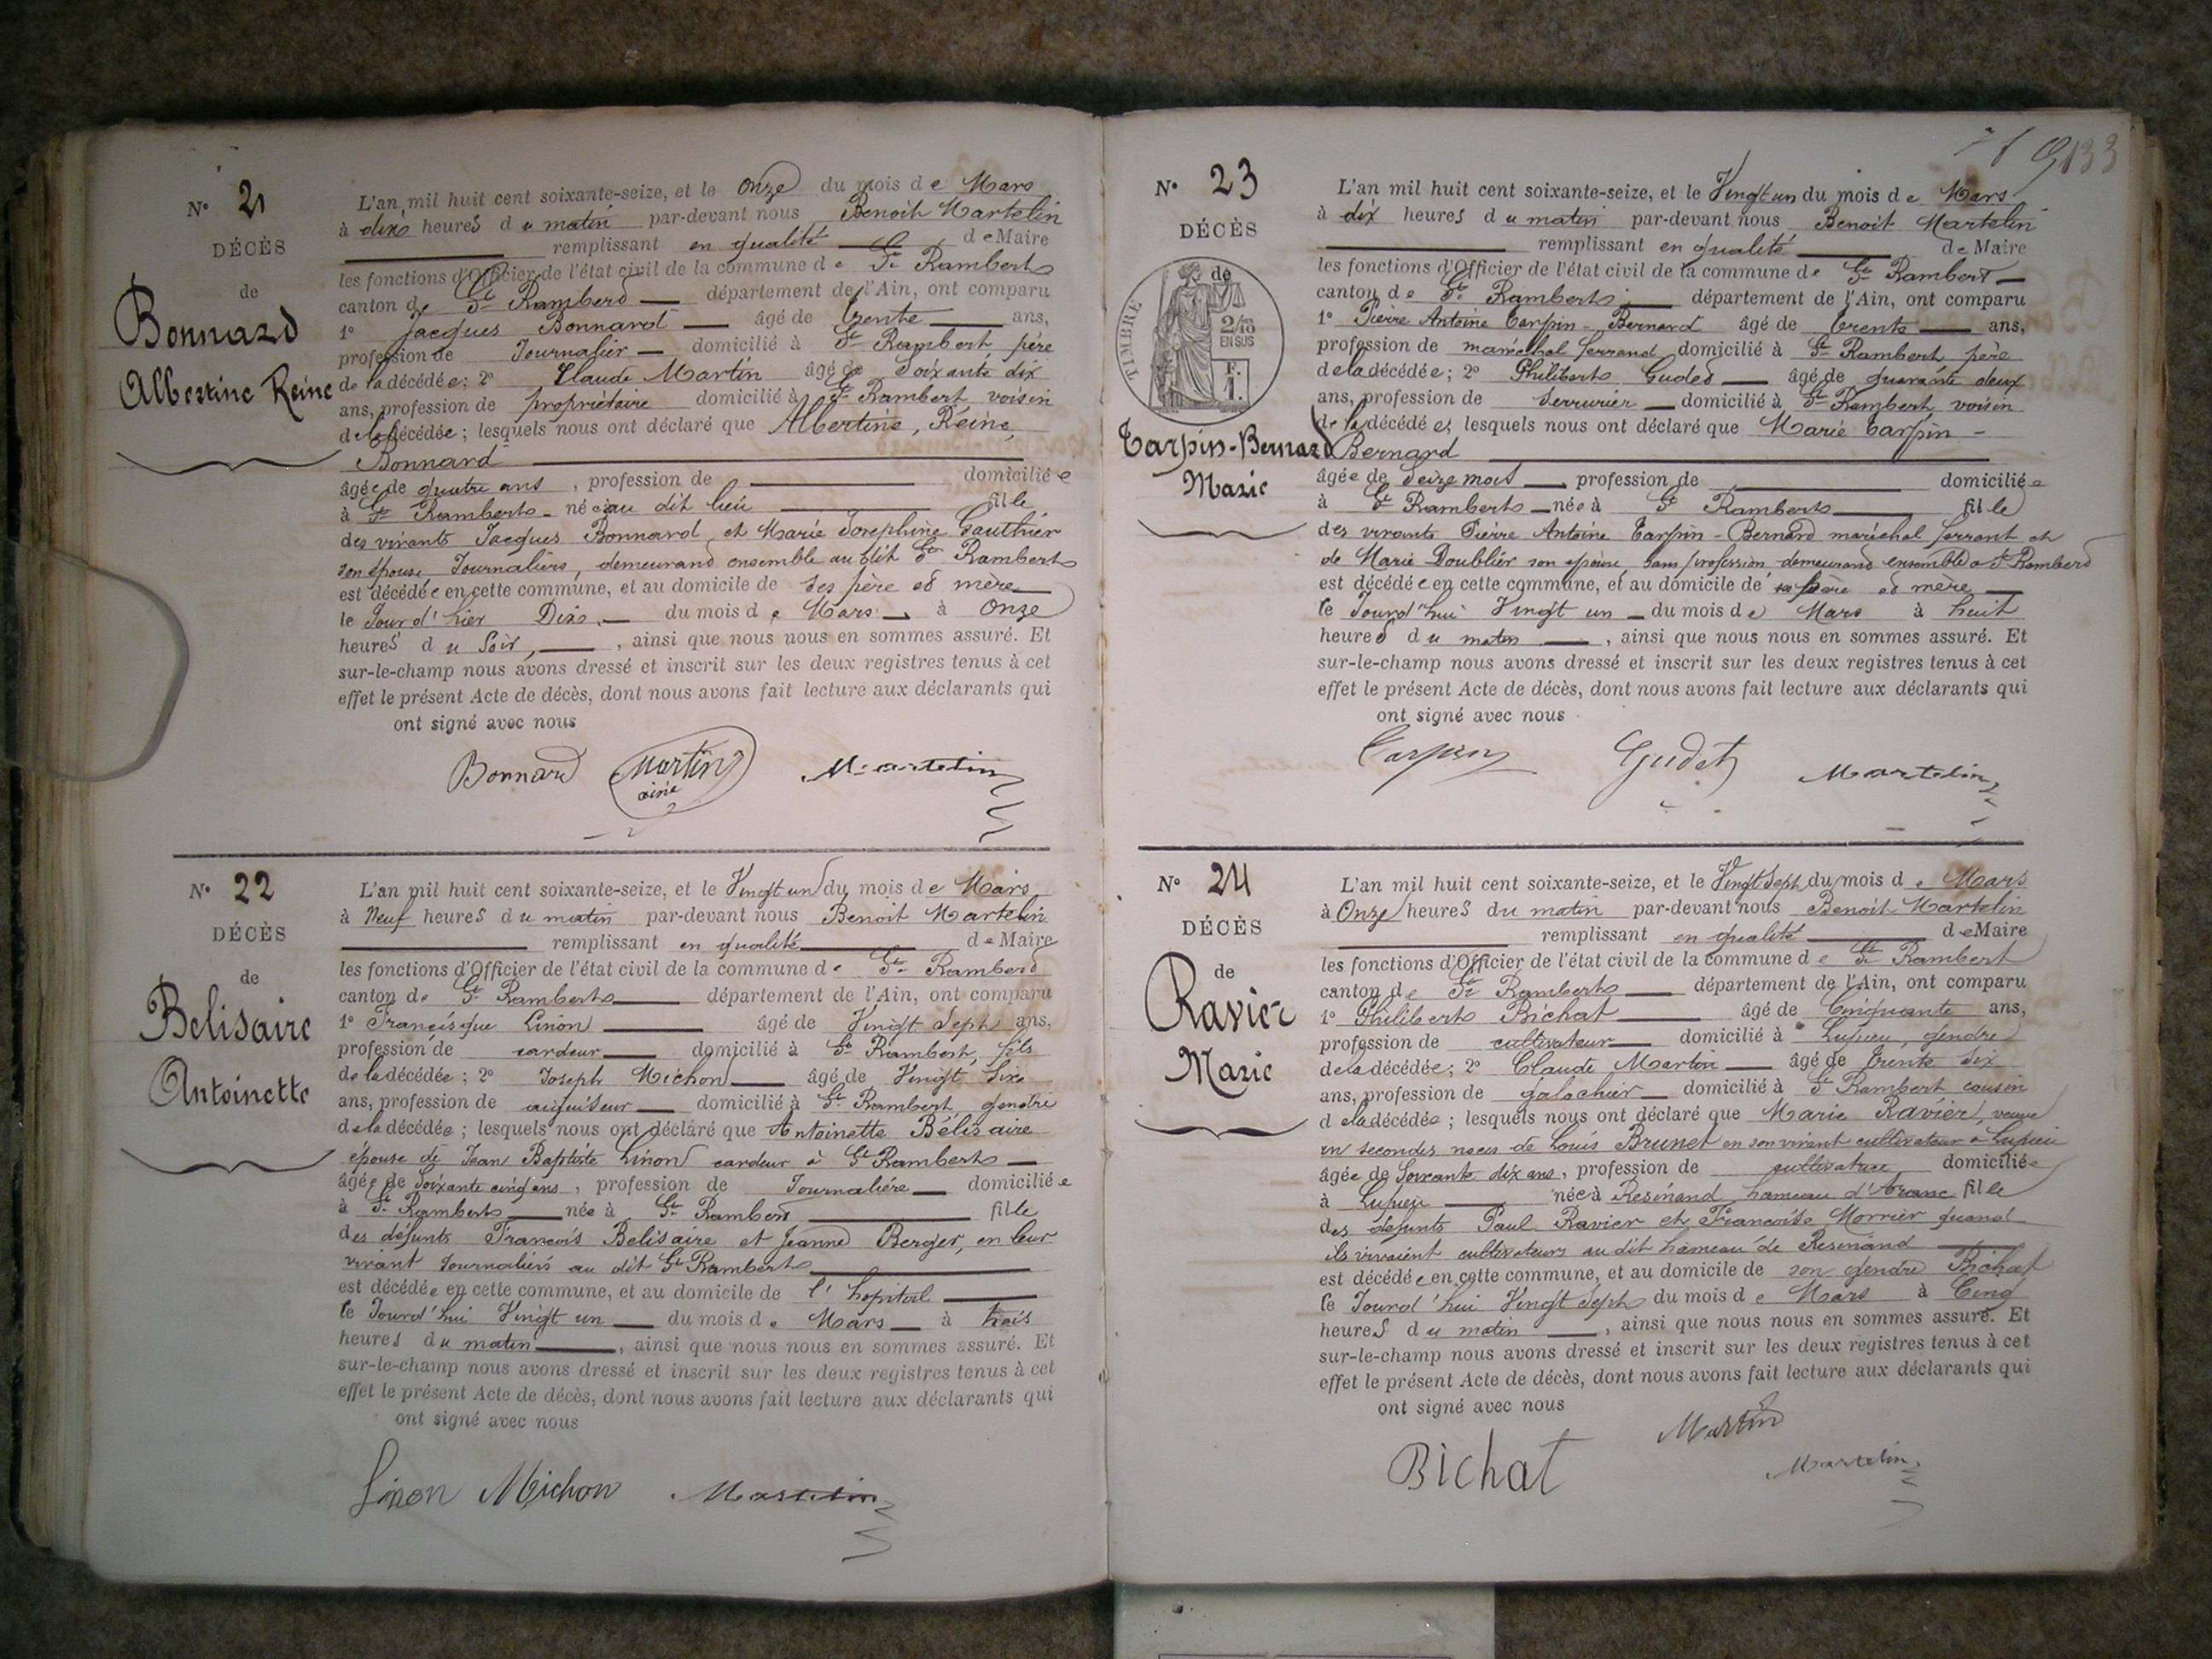 N° 21
DÉCÈS
de
Bonnard
Albertine Reine
L'an mil huit cent soixante-seize, et le onze du mois de Mars
à dix heures du matin par-devant nous Benoit Martelin
remplissant en qualité de Maire
les fonctions d'Officier de l'état civil de la commune de St Rambert
canton de St Rambert département de l'Ain, ont comparu
1° Jacques Bonnard âgé de trente ans,
profession de Journalier domicilié à St Rambert père
de la décédée; 2° Claude Martin âgé de Soixante dix
ans, profession de propriétaire domicilié à St Rambert voisin
de la décédée; lesquels nous ont déclaré que Albertine, Reine,
Bonnard
âgée de quatre ans, profession de domiciliée
à St Rambert née au dit lieu fille
des vivants Jacques Bonnard et Marie Josephine Gauthier
son épouse Journaliers, demeurand ensemble au dit St Rambert
est décédée en cette commune, et au domicile de ses père et mère
le Jour d'hier Dix du mois de Mars à Onze
heures du Soir, , ainsi que nous nous en sommes assuré. Et
sur-le-champ nous avons dressé et inscrit sur les deux registres tenus à cet
effet le présent Acte de décès, dont nous avons fait lecture aux déclarants qui
ont signé avec nous
Bonnard Martin ainé Martelin
N° 22
DÉCÈS
de
Belisaire
Antoinette
L'an mil huit cent soixante-seize, et le Vingt un du mois de Mars
à Neuf heures du matin par-devant nous Benoit Martelin
remplissant en qualité de Maire
les fonctions d'Officier de l'état civil de la commune de St Rambert
canton de St Rambert département de l'Ain, ont comparu
1° Francisque Linon âgé de Vingt Sept ans,
profession de cardeur domicilié à St Rambert, fils
de la décédée; 2° Joseph Michon âgé de Vingt Six
ans, profession de aiguiseur domicilié à St Rambert gendre
de la décédée; lesquels nous ont déclaré que Antoinette Bélisaire
épouse de Jean Baptiste Linon cardeur à St Rambert
âgée de Soixante cinq ans, profession de Journalière domiciliée
à St Rambert née à St Rambert fille
des défunts Francois Belisaire et Jeanne Berger, en leur
vivant Journaliers au dit St Rambert
est décédée en cette commune, et au domicile de l'hopital
le Jourd'hui Vingt un du mois de Mars à trois
heures du matin , ainsi que nous nous en sommes assuré. Et
sur-le-champ nous avons dressé et inscrit sur les deux registres tenus à cet
effet le présent Acte de décès, dont nous avons fait lecture aux déclarants qui
ont signé avec nous
Linon Michon Martelin
133
N° 23
DÉCÈS
de
TIMBRE
2/10
EN SUS
F.
1.
Tarpin-Bernard
Marie
L'an mil huit cent soixante-seize, et le Vingt un du mois de Mars
à dix heures du matin par-devant nous Benoit Martelin
remplissant en qualité de Maire
les fonctions d'Officier de l'état civil de la commune de St Rambert
canton de St Rambert département de l'Ain, ont comparu
1° Pierre Antoine Tarpin-Bernard âgé de trente ans,
profession de maréchal ferrand domicilié à St Rambert père
de la décédée; 2° Philibert Guded âgé de quarante deux
ans, profession de Serrurier domicilié à St Rambert voisin
de la décédée; lesquels nous ont déclaré que Marie Tarpin-
Bernard
âgée de Seize mois profession de domiciliée
à St Rambert née à St Rambert fille
des vivants Pierre Antoine Tarpin-Bernard maréchal ferrant et
de Marie Doublier son épouse, sans profession demeurand ensemble à St Rambert
est décédée en cette commune, et au domicile de père et mère
le Jourd'hui Vingt un du mois de Mars à huit
heures du matin , ainsi que nous nous en sommes assuré. Et
sur-le-champ nous avons dressé et inscrit sur les deux registres tenus à cet
effet le présent Acte de décès, dont nous avons fait lecture aux déclarants qui
ont signé avec nous
Tarpin Gudet Martelin
N° 24
DÉCÈS
de
Ravier
Marie
L'an mil huit cent soixante-seize, et le Vingt Sept du mois de Mars
à Onze heures du matin par-devant nous Benoit Martelin
remplissant en qualité de Maire
les fonctions d'Officier de l'état civil de la commune de St Rambert
canton de St Rambert département de l'Ain, ont comparu
1° Philibert Bichat âgé de Cinquante ans,
profession de cultivateur domicilié à Lupieu, gendre
de la décédée; 2° Claude Martin âgé de trente six
ans, profession de galochier domicilié à St Rambert cousin
de la décédée; lesquels nous ont déclaré que Marie Ravier, veuve
en secondes noces de Louis Brunet en son vivant cultivateur à Lupieu
âgée de Soixante dix ans, profession de cultivatrice domiciliée
à Lupieu née à Resinand hameau d'Aranc fille
des défunts Paul Ravier et Francoise Morrier quand
ils vivaient cultivateurs au dit hameau de Resinand
est décédée en cette commune, et au domicile de son gendre Bichat
le Jourd'hui Vingt Sept du mois de Mars à Cinq
heures du matin , ainsi que nous nous en sommes assuré. Et
sur-le-champ nous avons dressé et inscrit sur les deux registres tenus à cet
effet le présent Acte de décès, dont nous avons fait lecture aux déclarants qui
ont signé avec nous
Bichat Martin Martelin